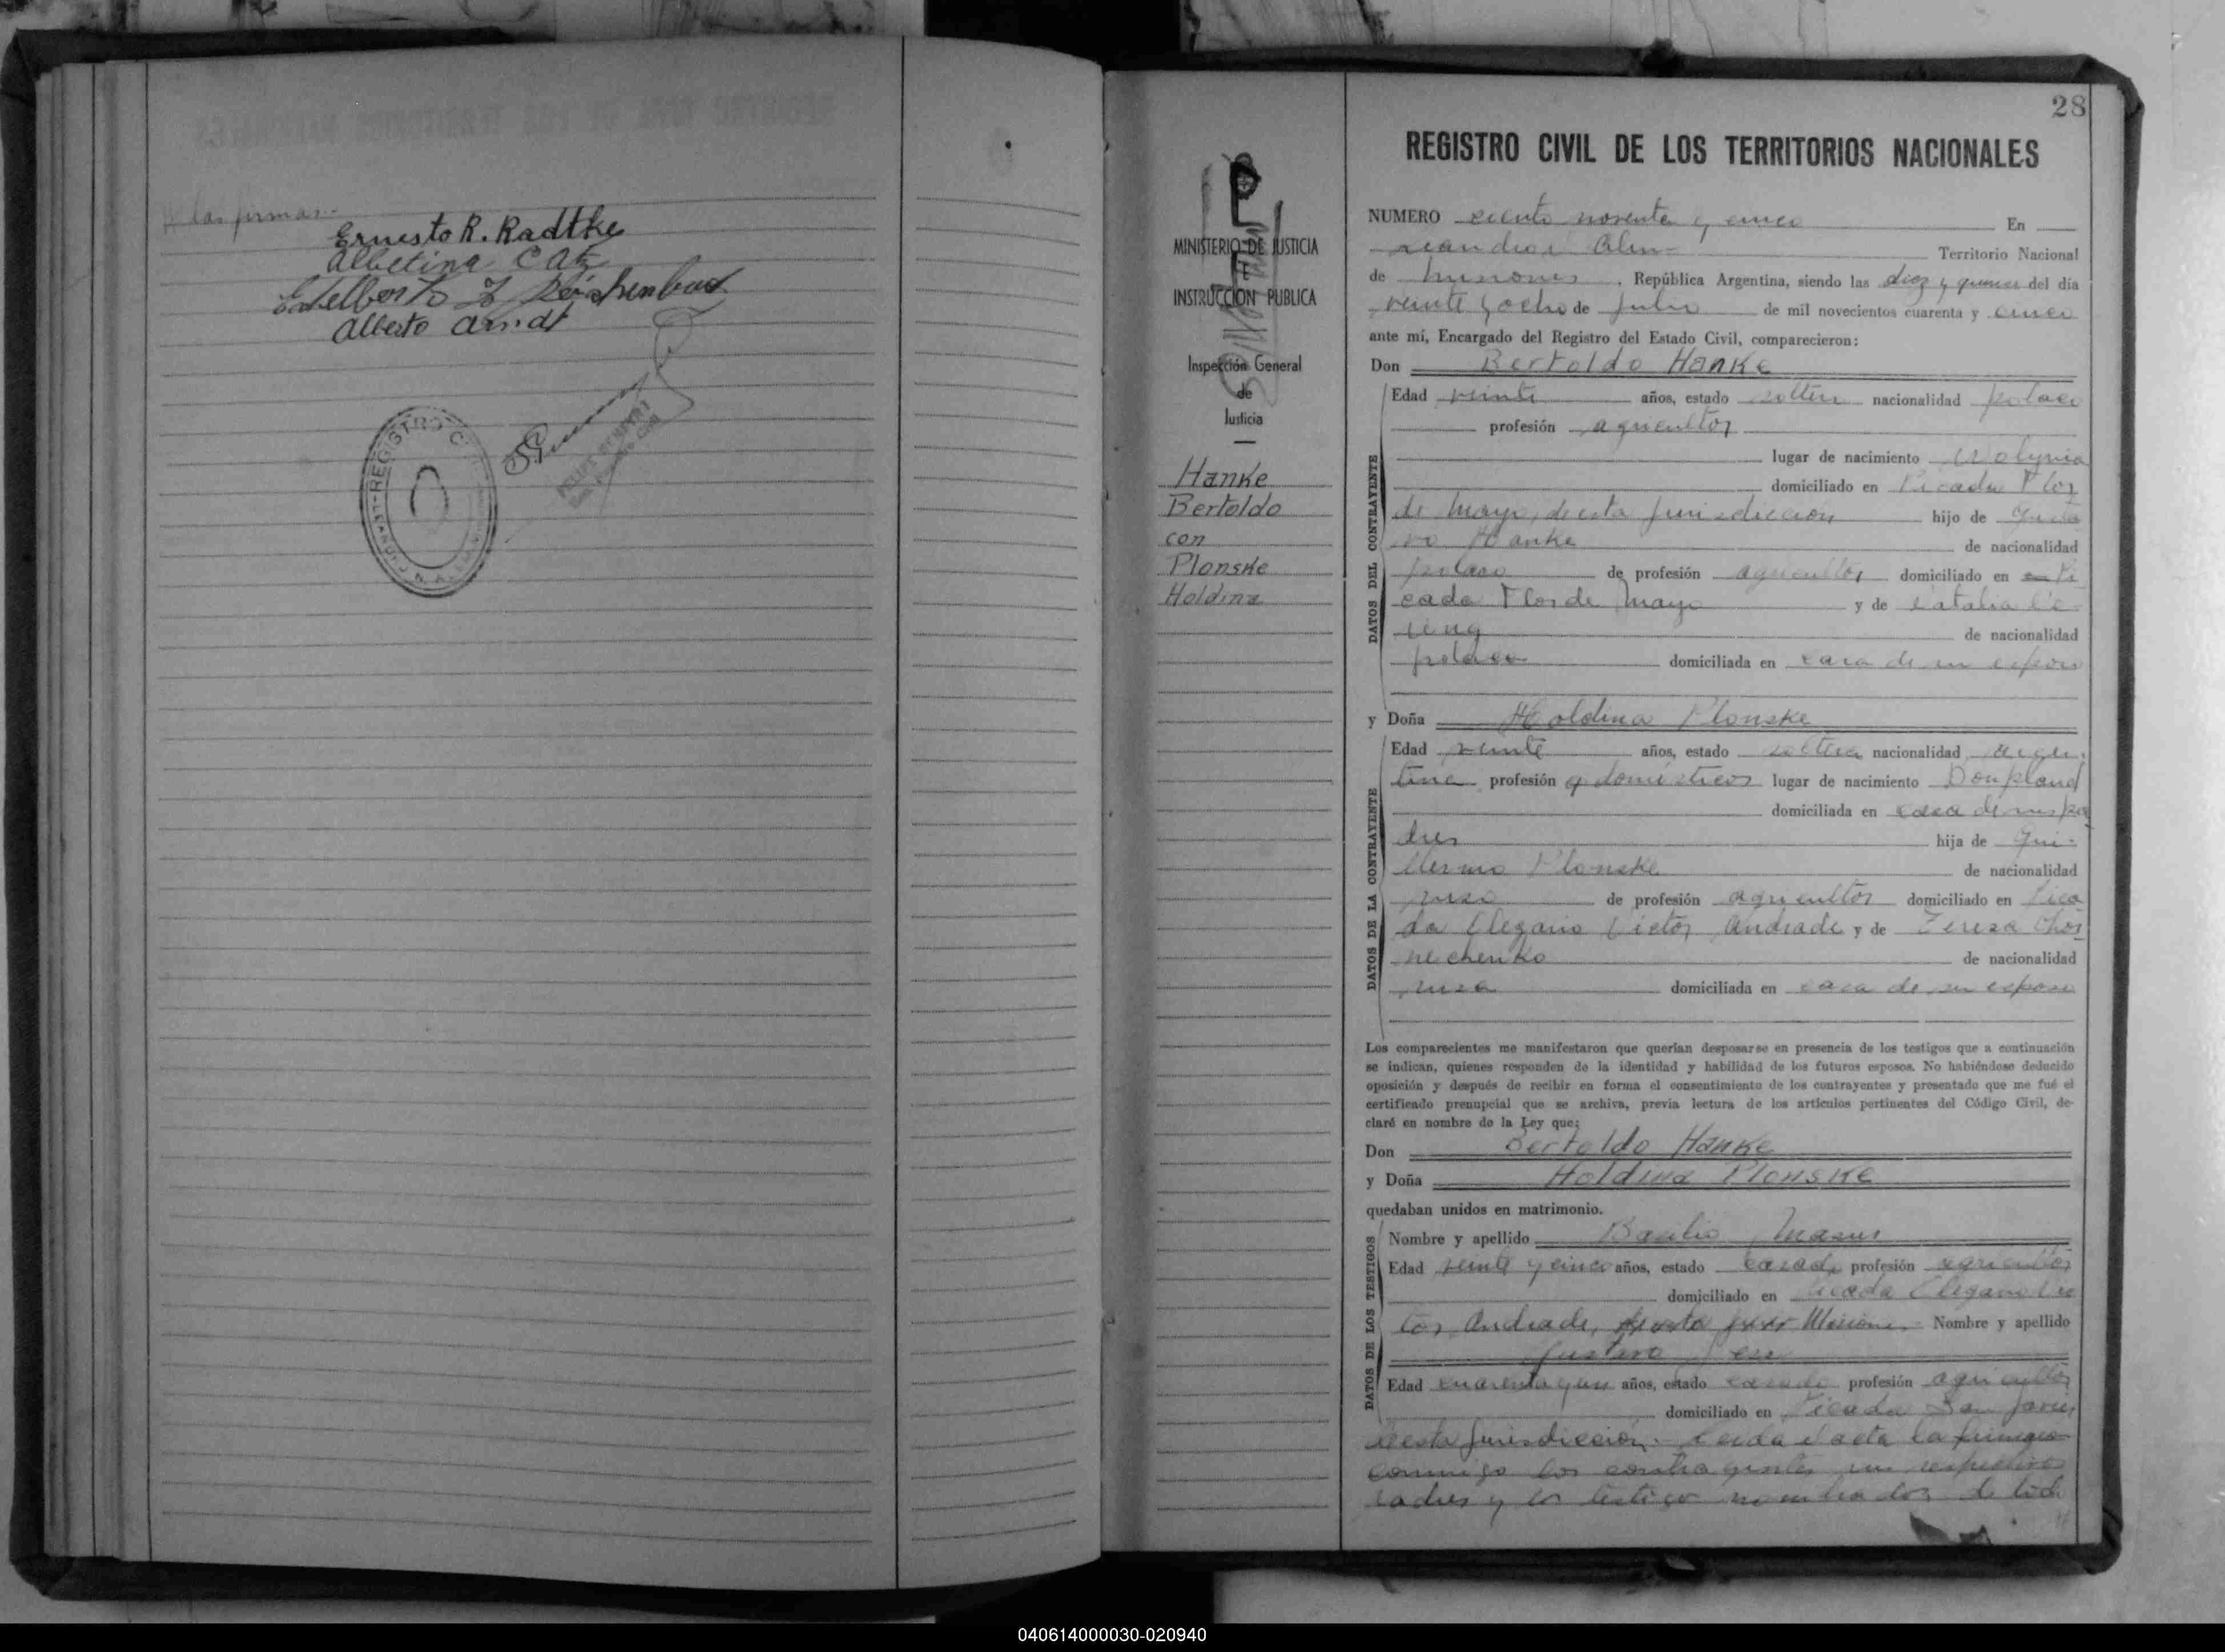 las firmas.-
Ernesto R. Radtke
Albetina Catz
Edelberto
Alberto Arndt
REGISTRO C
28
REGISTRO CIVIL DE LOS TERRITORIOS NACIONALES
MINISTERIO DE JUSTICIA
E
INSTRUCCIÓN PUBLICA
Inspección General
de
Justicia
Hanke
Bertoldo
con
Plonske
Holdina
NUMERO ciento noventa y cinco En
Leandro N. Alem Territorio Nacional
de Misiones, República Argentina, siendo las diez y quince del día
veinte y ocho de Julio de mil novecientos cuarenta y cinco
ante mí, Encargado del Registro del Estado Civil, comparecieron:
Don Bertoldo Hanke
DATOS DEL CONTRAYENTE
Edad veinte años, estado soltero nacionalidad polaco
profesión agricultor
lugar de nacimiento Wolynia
domiciliado en Picada Flor
de Mayo, de esta jurisdicción hijo de Gusta
vo Hanke de nacionalidad
polaco de profesión agricultor domiciliado en Pi
cada Flor de Mayo y de
de nacionalidad
polaca domiciliada en casa de su esposo
y Doña Holdina Plonske
DATOS DE LA CONTRAYENTE
Edad veinte años, estado soltera nacionalidad argen-
tina profesión q. domésticos lugar de nacimiento Bonpland
domiciliada en casa de sus pa
dres hija de Gui-
llermo Plonske de nacionalidad
ruso de profesión agricultor domiciliado en Pica
da Olegario Victor Andrade y de Tereza Chor
nechenko de nacionalidad
rusa domiciliada en casa de su esposo
Los comparecientes me manifestaron que querían desposarse en presencia de los testigos que a continuación
se indican, quienes responden de la identidad y habilidad de los futuros esposos. No habiéndose deducido
oposición y después de recibir en forma el consentimiento de los contrayentes y presentado que me fué el
certificado prenupcial que se archiva, previa lectura de los artículos pertinentes del Código Civil, de-
claré en nombre de la Ley que:
Don Bertoldo Hanke
y Doña Holdina Plonske
quedaban unidos en matrimonio.
DATOS DE LOS TESTIGOS
Nombre y apellido Basilio
Edad veinte y cinco años, estado casado profesión agricultor
domiciliado en Picada Olegario Vic
tor Andrade, Misiones Nombre y apellido
Gustavo
Edad cuarenta y un años, estado casado profesión agricultor
domiciliado en Picada San Javier
de esta jurisdicción. Leida el acta la firmaron
conmigo los contrayentes sus respectivos
padres y los testigos nombrados de todo